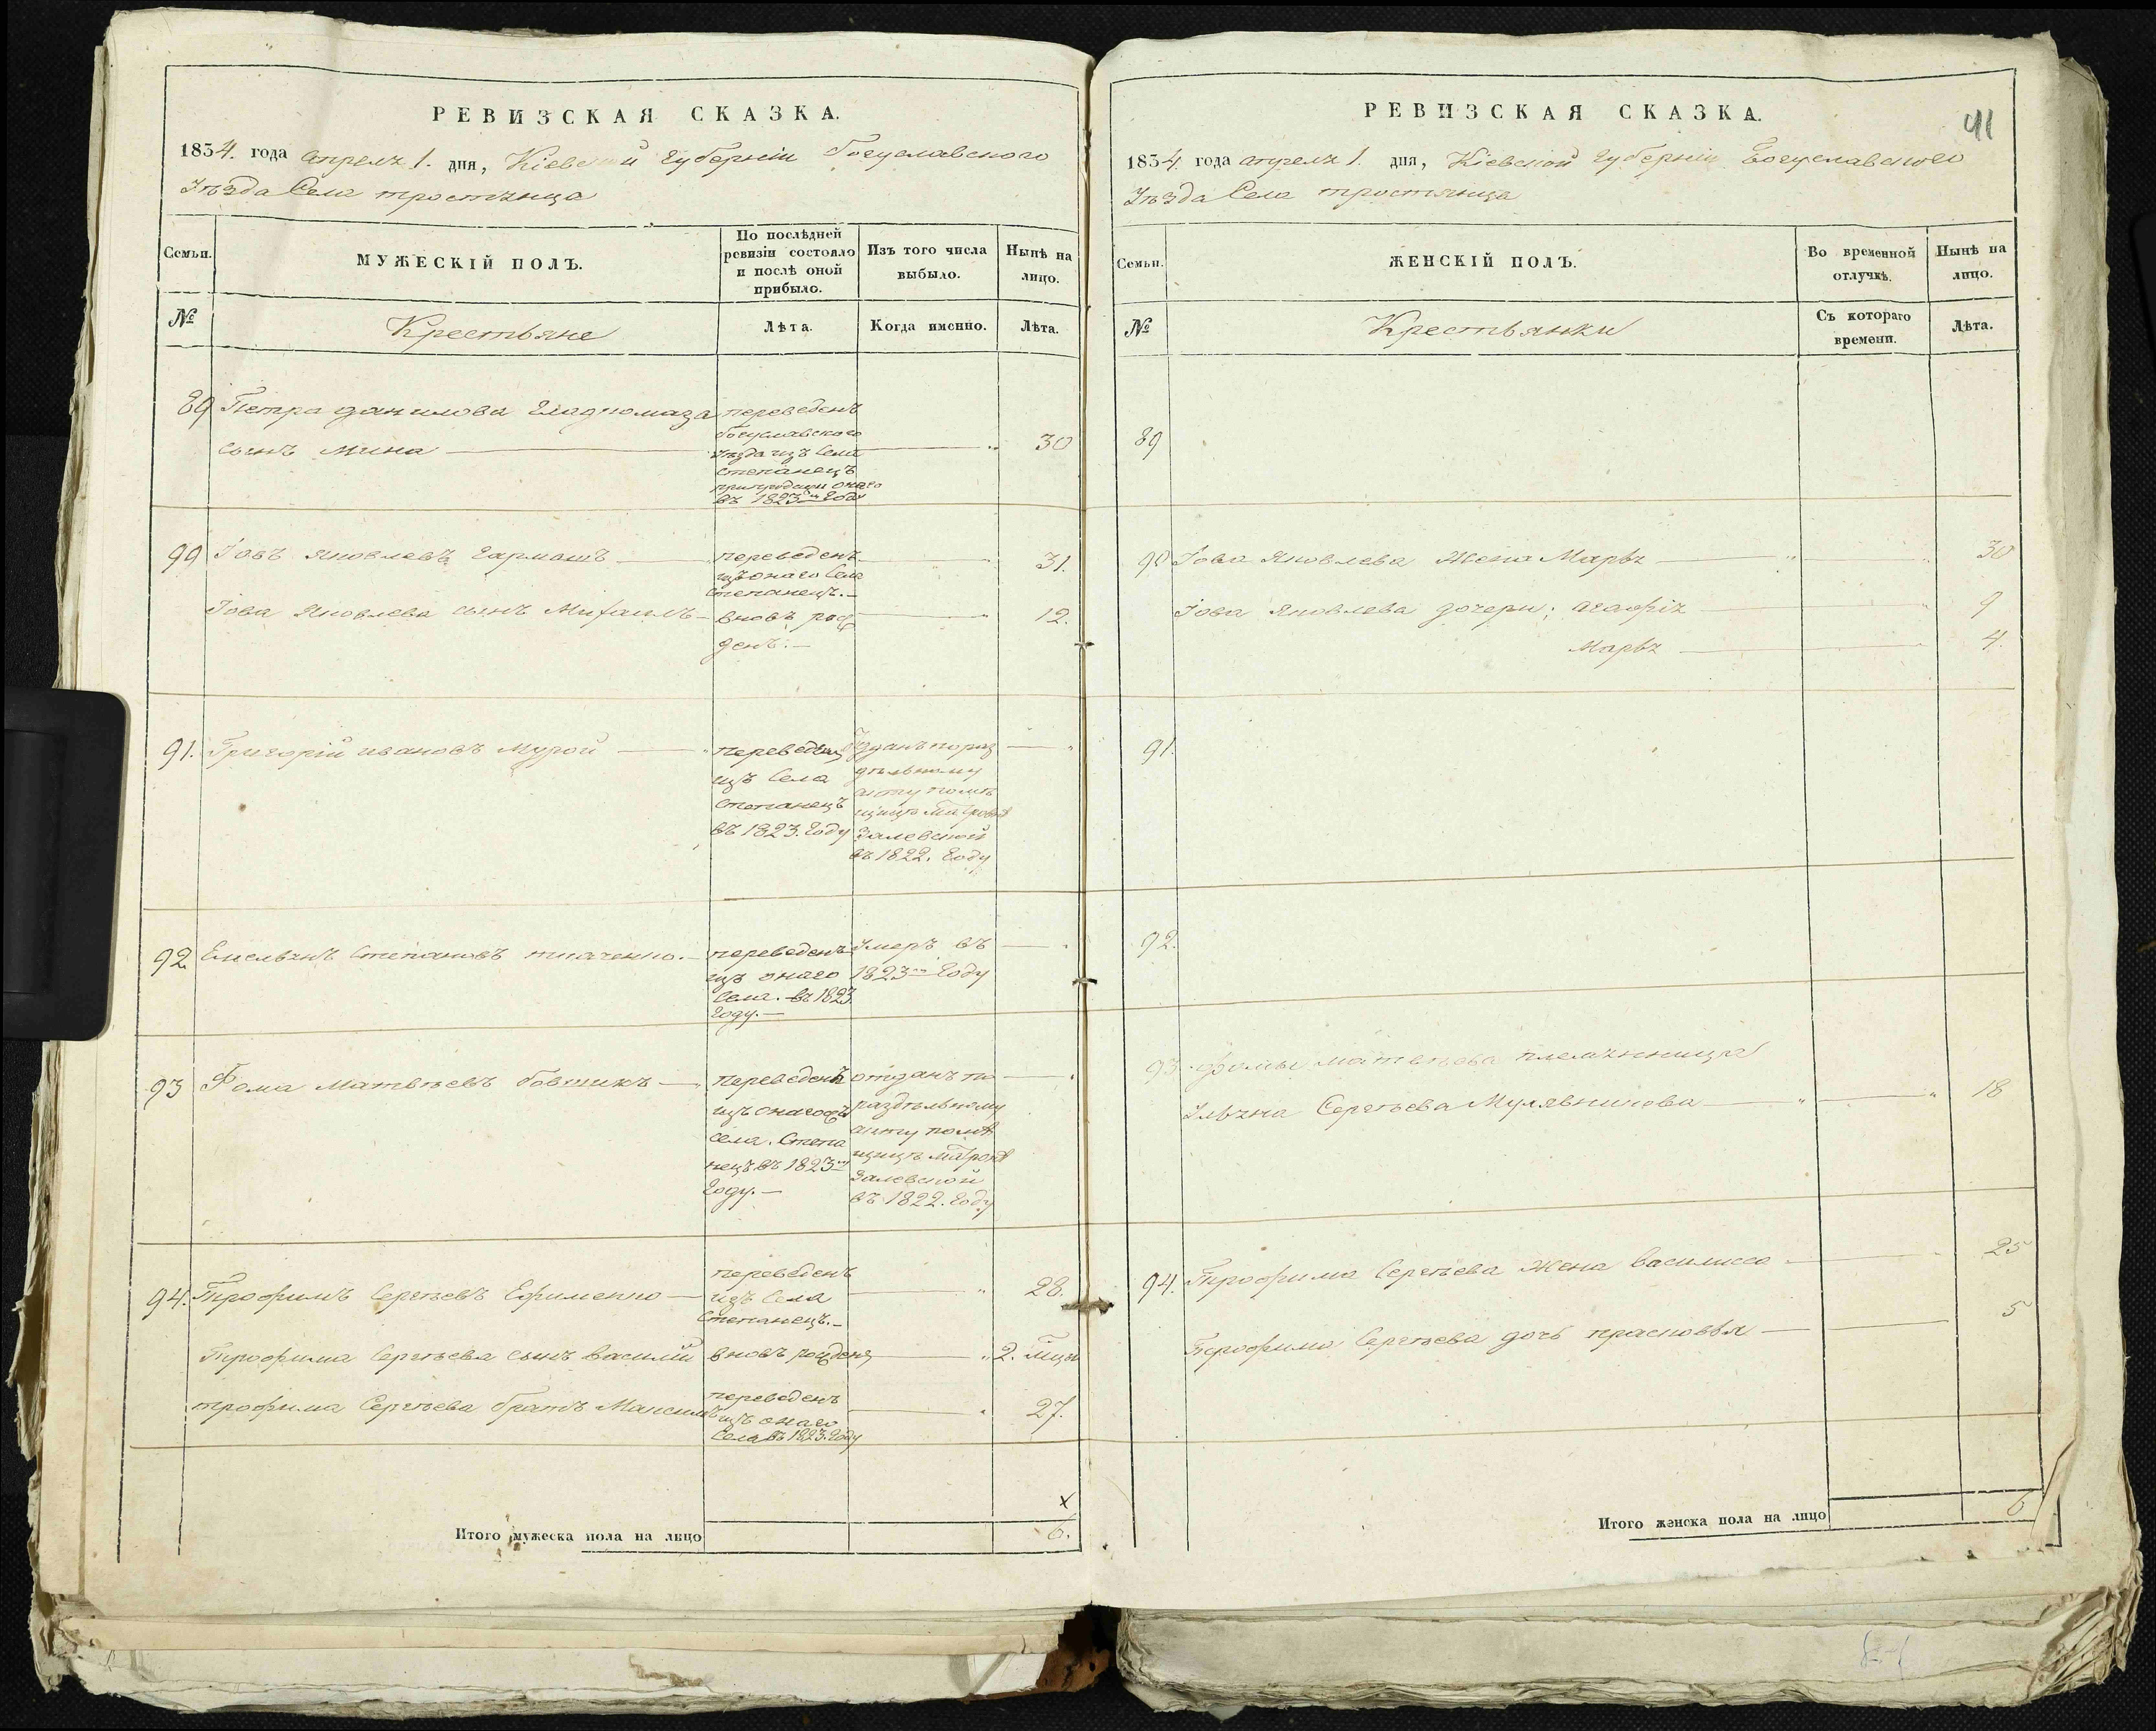 РЕВИЗСКАЯ СКАЗКА.
1834. года апреля 1. дня, Кіевской губерніи Богуславского
Уѣзда Села тростянца
Семьи.
МУЖЕСКІЙ ПОЛЪ.
По послѣдней
ревизіи состояло
и послѣ оной
прибыло.
Изъ того числа
выбыло.
Нынѣ на
лицо.
№
Крестьяне
Лѣта.
Когда именно.
Лѣта.
89 Петра данилова
сынъ Мина
переведенъ
Богуславского
уѣзда изъ Села
степанецъ
оного
въ 1823м году
30
90 Іовъ Яковлевъ гармашъ
переведенъ
изъ оного Села
степанецъ.
31.
Іова Яковлева сынъ Михаилъ
вновь рож
денъ.
12.
91. Григорій ивановъ мурой
переведенъ
изъ Села
степанецъ
въ 1823. году
отданъ по раз
дѣльному
акту помѣ
щицѣ
Залевской
въ 1822. году
92. Емельянъ Степановъ ткаченко.
переведенъ
изъ оного
Села. въ 1823
году.
Умеръ въ
1823м году
93 Фома Матвѣевъ бовшикъ
переведенъ
изъ оного
села. Степа
нецъ въ 1823м
году.
отданъ по
раздѣльному
акту помѣ
щицѣ
Залевской
въ 1822. году
94. Трофимъ Сергѣевъ Ефименко
переведенъ
изъ Села
Степанецъ.
28.
Трофима Сергѣева сынъ василій
вновь рожденъ
2. мцы
трофима Сергѣева братъ Максимъ
переведенъ
изъ оного
Села въ 1823. году
27.
х
Итого мужеска пола на лицо
6.
41
РЕВИЗСКАЯ СКАЗКА.
1834. года апреля 1. дня, Кіевской губерніи Богуславского
Уѣзда Села тростянца
Семьи.
ЖЕНСКІЙ ПОЛЪ.
Во временной
отлучкѣ.
Нынѣ на
лицо.
№
Крестьянки
Съ котораго
времени.
Лѣта.
89
90 Іова Яковлева жена Марья 30
Іова Яковлева дочери; агафія 9
Марья 4.
91.
92.
93. фомы матвѣева племянница
Ульяна Сергѣева 18
94. Трофима Сергѣева жена василиса 25
Трофима Сергѣева дочь прасковья 5
Итого женска пола на лицо
6